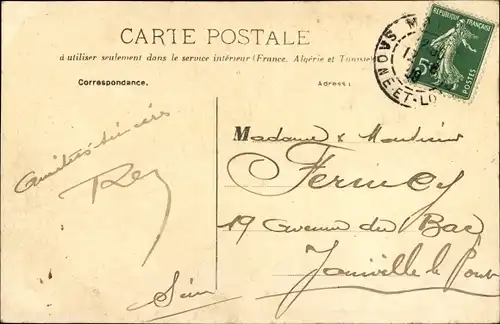 CARTE POSTALE
à utiliser seulement dans le service intérieur (France, Algérie et Tunisie)
Correspondance.
Adresse:
RÉPUBLIQUE FRANÇAISE
5c
SAÔNE-ET-LO
Amitiés sincères
Rey
Madame & Monsieur
Fermey
19 avenue du Bac
Joinville le Pont
Seine